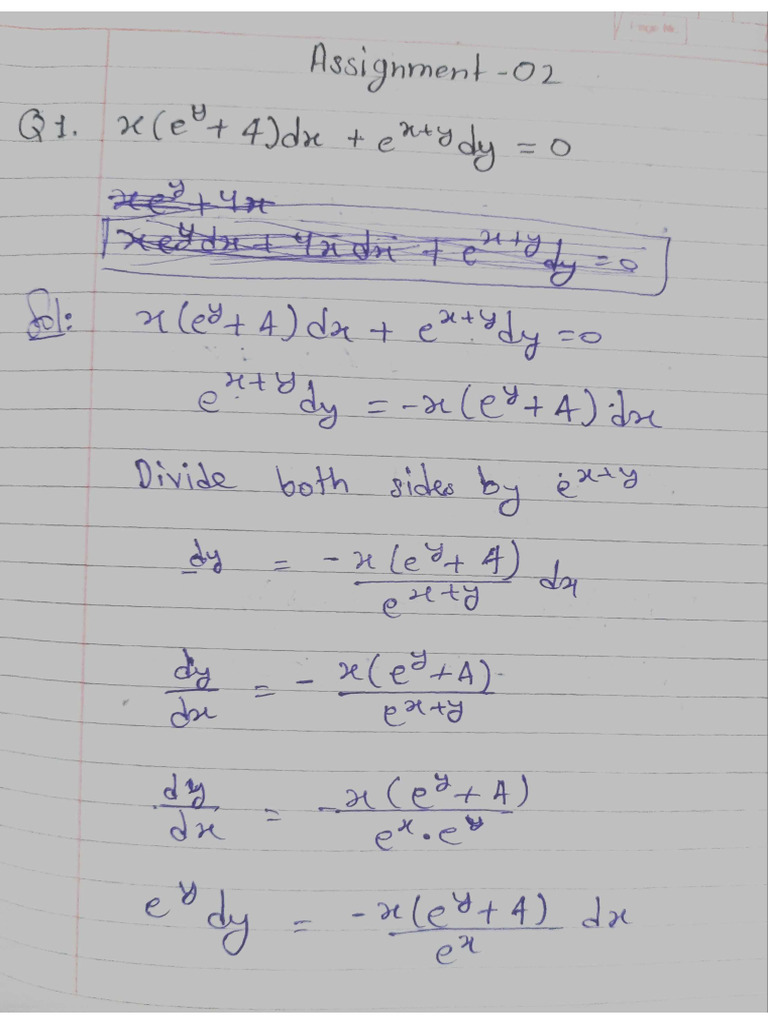 Assignment - 02
Q1. x(e^y + 4)dx + e^{x+y}dy = 0
xe^y + 4x
xe^y dx + 4x dx + e^{x+y}dy = 0
Sol: x(e^y + 4)dx + e^{x+y}dy = 0
e^{x+y}dy = -x(e^y + 4)dx
Divide both sides by e^{x+y}
dy = -x(e^y + 4)/e^{x+y} dx
dy/dx = -x(e^y + 4)/e^{x+y}
dy/dx = -x(e^y + 4)/e^x · e^y
e^y dy = -x(e^y + 4)/e^x dx